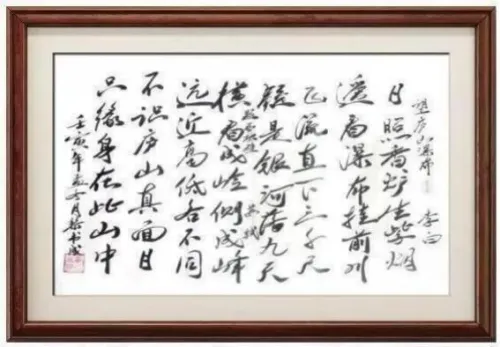 望庐山瀑布 李白
日照香炉生紫烟
遥看瀑布挂前川
飞流直下三千尺
疑是银河落九天
题西林壁 苏轼
横看成岭侧成峰
远近高低各不同
不识庐山真面目
只缘身在此山中
壬寅年